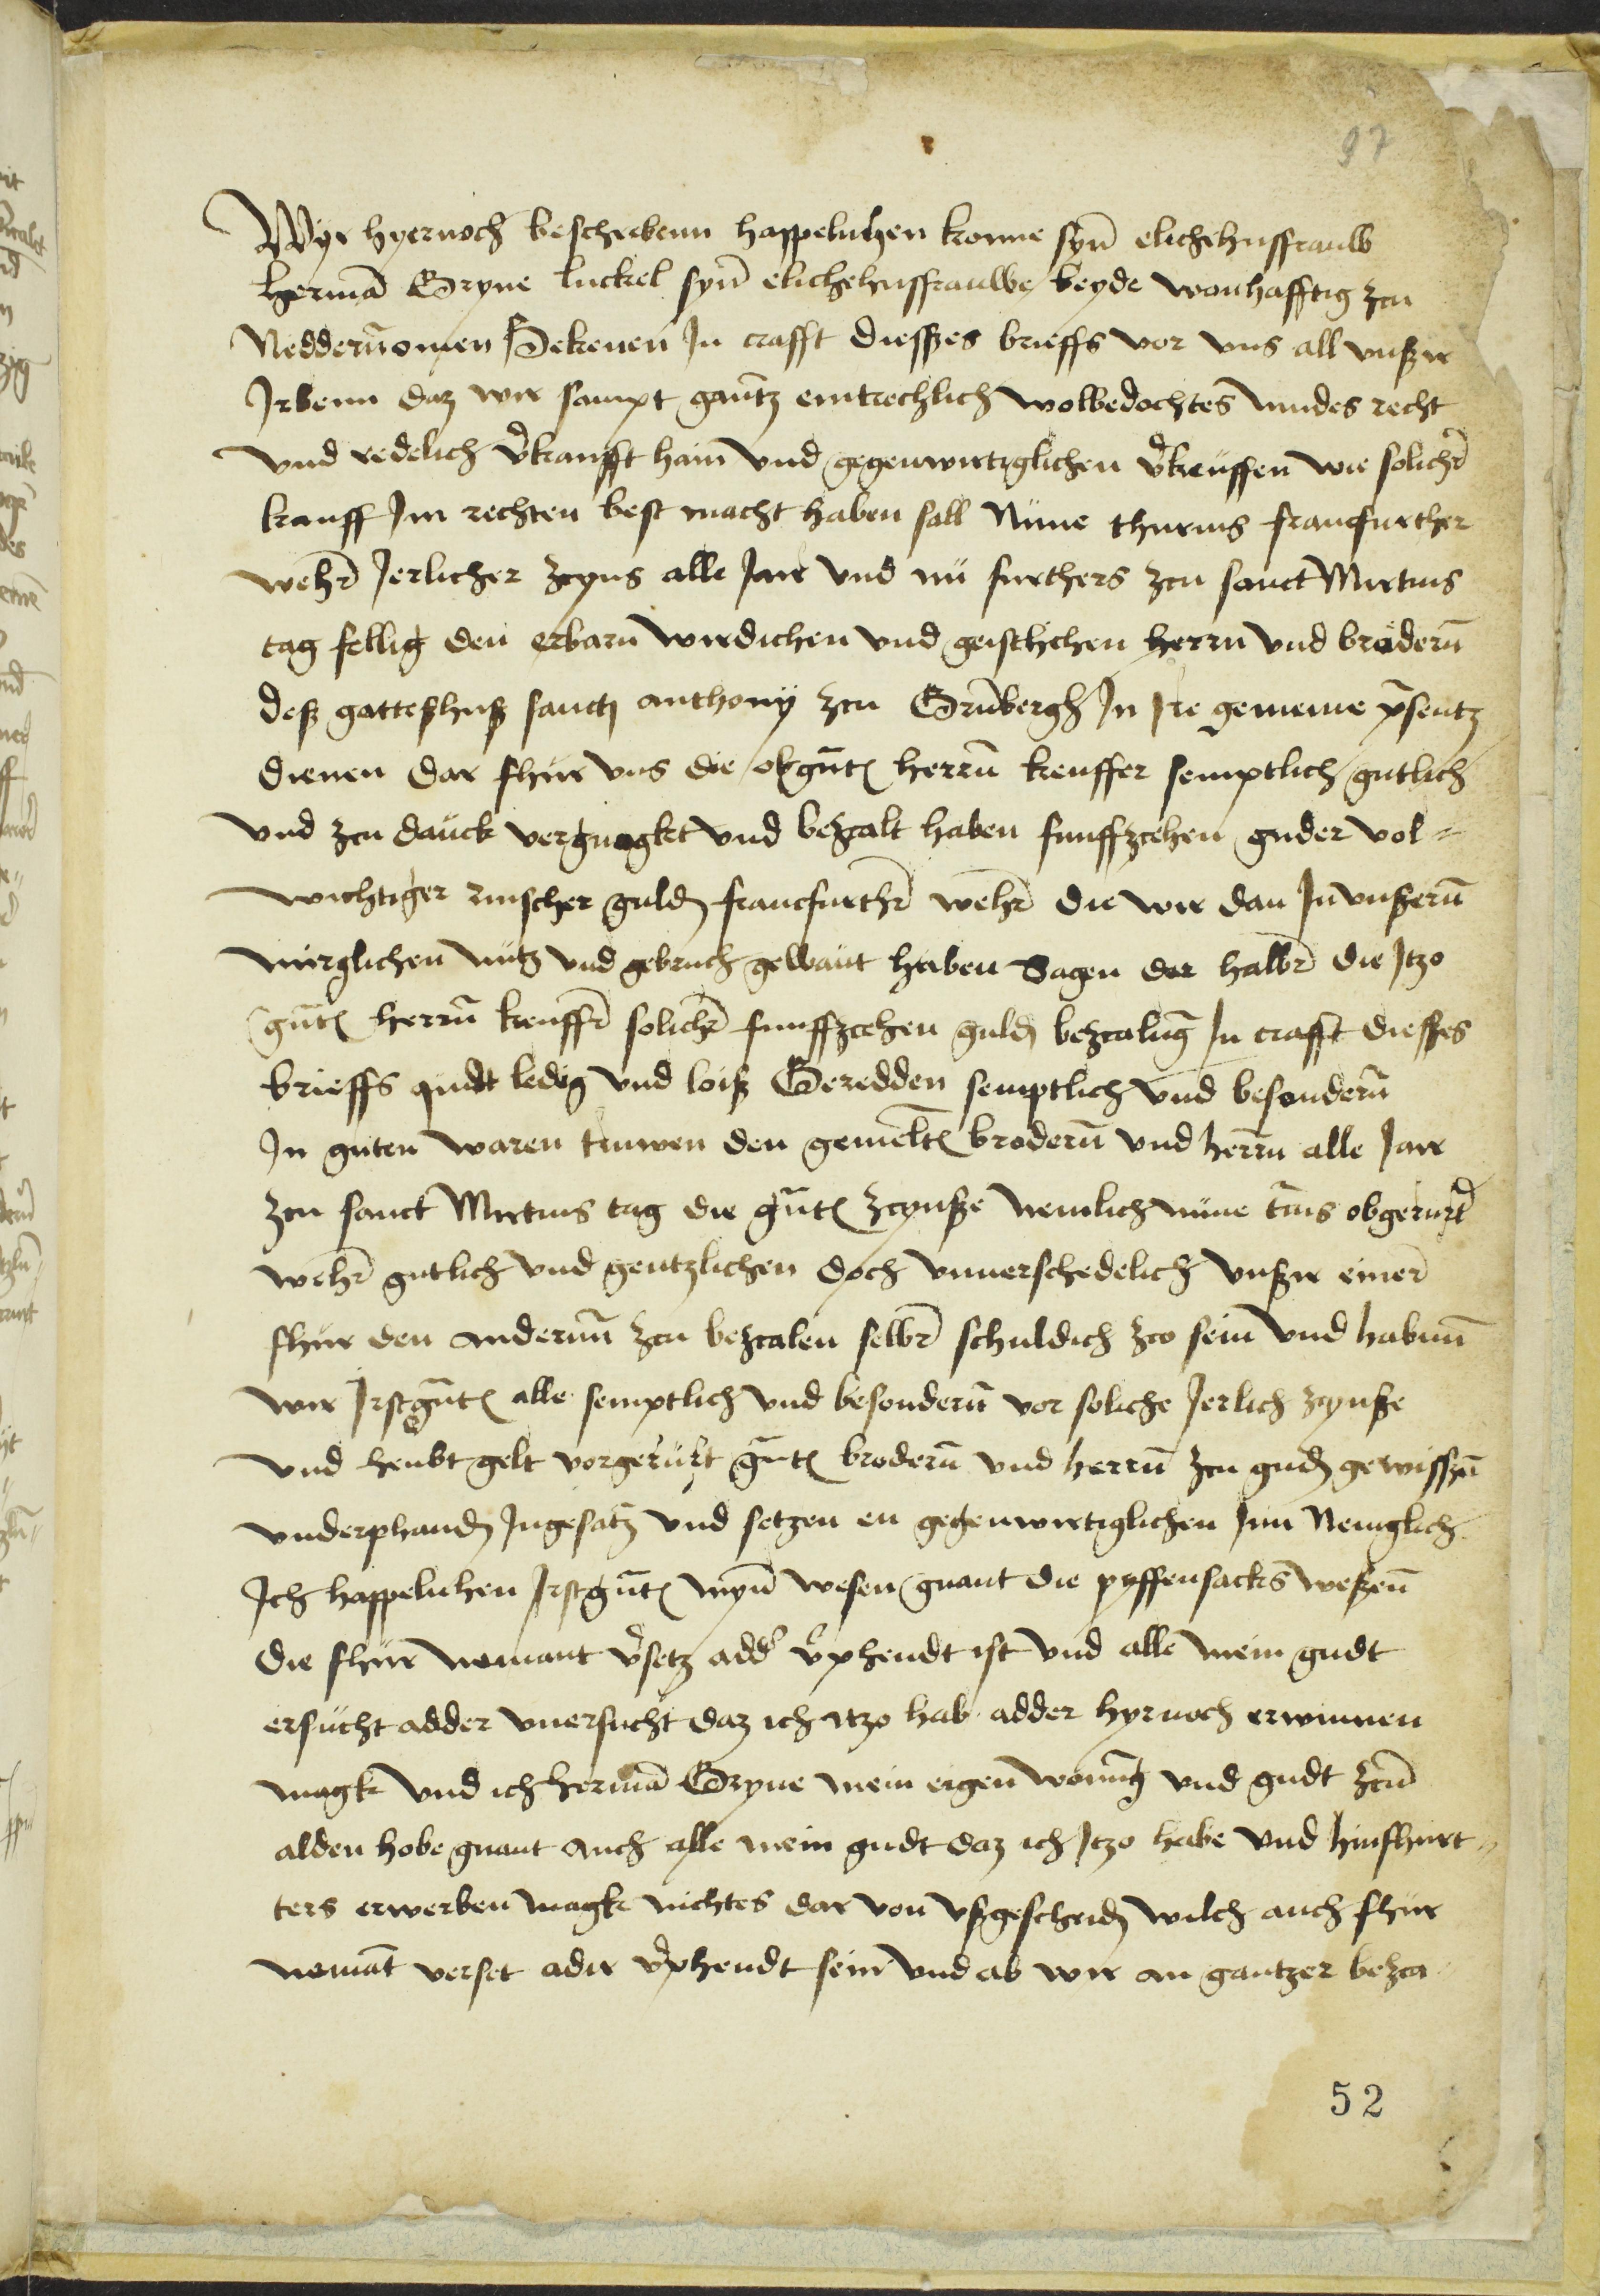 97
Wyr hyernoch beschrebenn happeluhen konne syn̄ elichehusfrauw
hermā Gryne luckel syn̄ elichehusfrauwe beyde wonhafftig zcu
Neddern̄omen Bekenen In crafft diesszes brieffs vor vns all vnßer
Irbenn daz wir sampt gantz eintrechlich wolbedochtes mudes recht
vnd redelich v̓kaufft hain vnd gegenwirtiglichen v̓keuffen wie solich̓r
kauff Im rechten best macht haben sall Nune thurnis francfurther
weh̓r Jerlicher zcyns alle Jair vnd nu furthers zcu sanct Mertins
tag fellig den erbarn wirdichen vnd geistlichen herrn vnd brodern̄
deß gotteßhuß sancti anthony zcu Grūbergh In ire gemeine p̄sentz
dienen dar fhur vns die obgnt̄ herrn̄ keuffer semptlich gutlich
vnd zcu danck vergnugkt vnd bezcalt haben funffzcehen guder vol-
wichtiger rinscher guld francfurth̓r weh̓r die wir dan In vnßern̄
mirglichen nutz vnd gebruch gewant haben Sagen der halb̓r die Itzo
gnt̄ herrn̄ keuff̓r solich̓r funffzcehen guld bezcalūg In crafft diesses
brieffs quidt ledig vnd loiß Geredden semptlich vnd besondern̄
In guten waren truwen den gemelt̄ brodern̄ vnd herrn̄ alle Jair
zcu sanct Mertins tag die gnt̄ zcynße nemlich nune t̄nis obgerurt̓
weh̓r gutlich vnd gentzlichen doch vnuerschedelich vnßer ein̓er
fhur den anderun̄ zcu bezcalen selb̓r schuldich zco sein vnd habun̄
wir Irstgnt̄ alle semptlich vnd besondern̄ vor soliche Jerlich zcynße
vnd heubt gelt vorgerurt gnt̄ brodern̄ vnd herrn̄ zcu gud gewissen̄
vnderphand Ingesatz vnd setzen en gegenwirtiglichen Inn Nemglich
Ich happeluhen Irstgnt̄ myn̄ wesen gnant die pyffensacks weßen̄
die fhur nemant v̓setz add̓ v̓phendt ist vnd alle mein gudt
ersucht adder vnersucht daz ich itzo hab adder hyrnoch erwinnen
magk vnd ich hermā Gryne mein eigen wonūg vnd gudt zcūn
alden hobe gnant auch alle mein gudt daz ich Itzo habe vnd hinfhurt-
ters erwerben magk nichtes dar von vßgescheid wilch auch fhur
nemāt verset ader v̓phendt sein vnd ab wir an gantzer bezca-
52